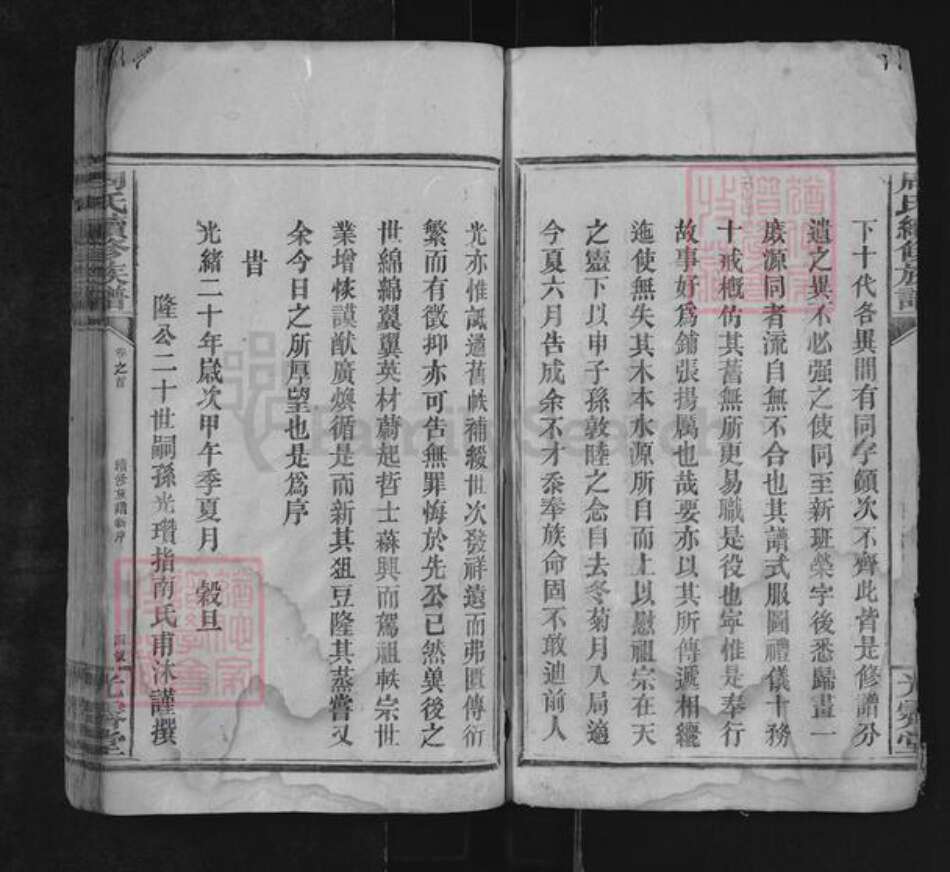 周氏續修族譜
下十代各異間有同字顛次不齊此皆是修譜分
遺之異不必强之使同至新班榮字後悉歸畫一
庶源同者流自無不合也其譜式服圖禮儀十務
十戒概仿其舊無所更易職是役也寕惟是奉行
故事好爲鋪張揚厲也哉要亦以其所傳遞相纚
迤使無失其木本水源所自而上以慰祖宗在天
之靈下以申子孫敦睦之念自去冬菊月入局適
今夏六月告成余不才忝奉族命固不敢迪前人
光亦惟祗遹舊帙補綴世次發祥遠而弗匱傳衍
繁而有徵抑亦可告無罪悔於先公已然冀後之
世綿綿翼翼英材蔚起哲士蘇興而駕祖軼宗世
業增恢謨猷廣煥循是而新其俎豆隆其蒸嘗又
余今日之所厚望也是爲序
旹
光緒二十年嵗次甲午季夏月 榖旦
隆公二十世嗣孫光瓚指南氏甫沐謹撰
周氏續修族譜
卷之首
續修族譜新序
FamilySearch